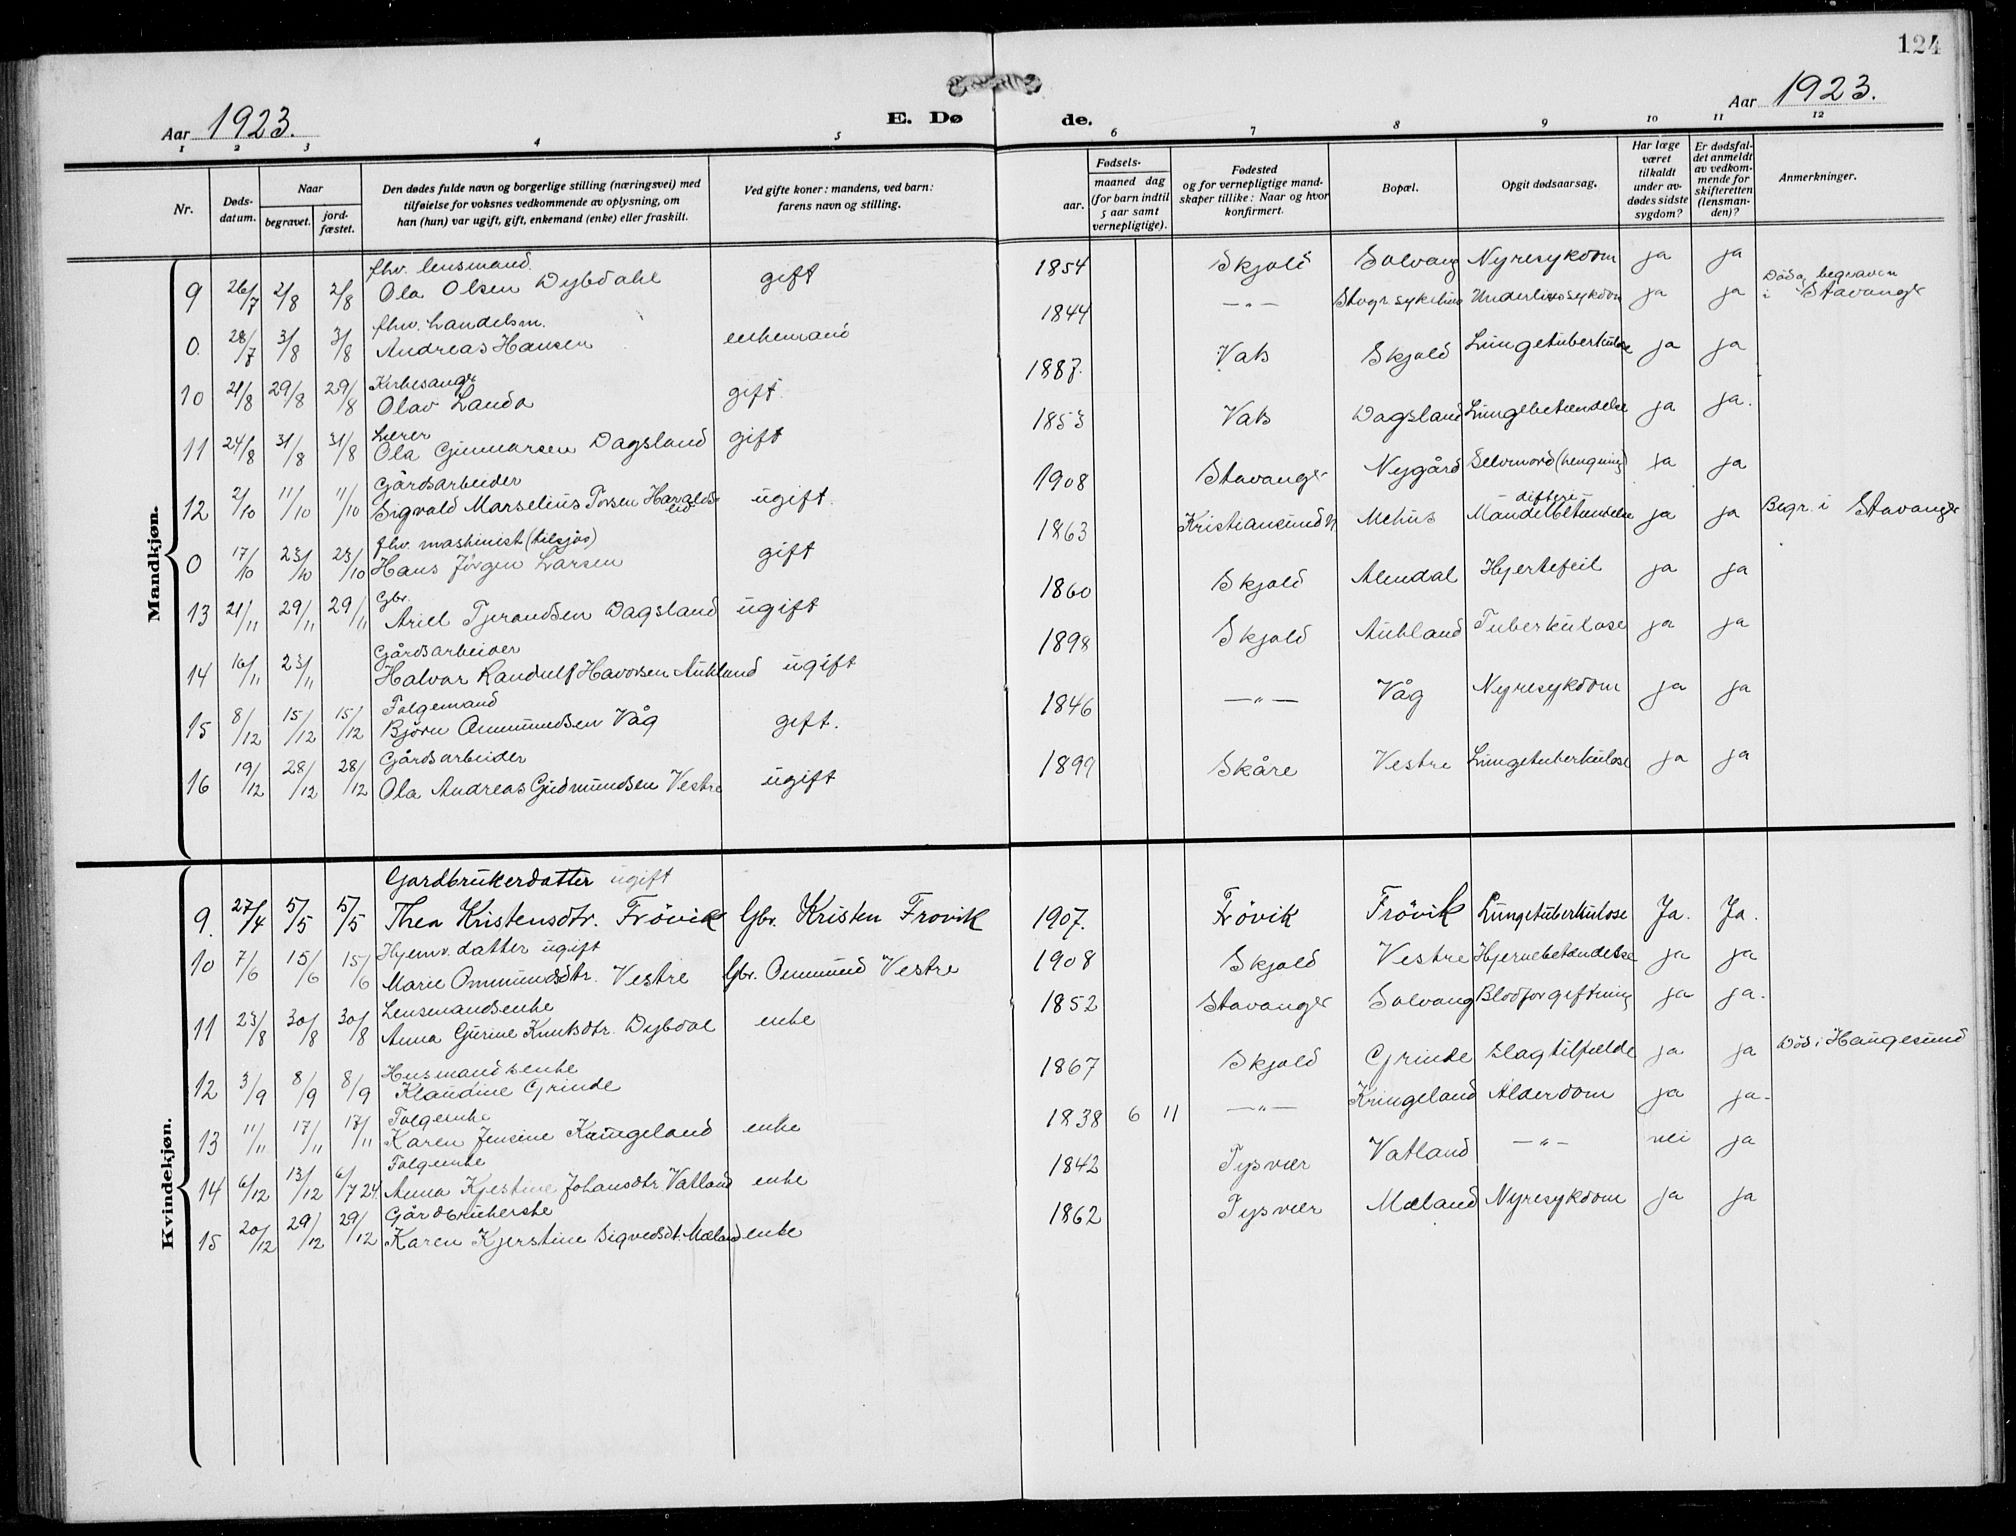 124
Aar 1923. E. Dø de. Aar 1923.
1 2 3 4 5 6 7 8 9 10 11 12
Nr.
Døds-datum.
Naar
begravet.
jord-fæstet.
Den dødes fulde navn og borgerlige stilling (næringsvei) med
tilføielse for voksnes vedkommende av oplysning, om
han (hun) var ugift, gift, enkemand (enke) eller fraskilt.
Ved gifte koner: mandens, ved barn:
farens navn og stilling.
Fødsels-
aar.
maaned dag
(for barn indtil
5 aar samt
vernepligtige).
Fødested
og for vernepligtige mand-
skaper tillike: Naar og hvor
konfirmert.
Bopæl.
Opgit dødsaarsag.
Har læge
været
tilkaldt
under av-
dødes sidste
sygdom?
Er dødsfal-
det anmeldt
av vedkom-
mende for
skifteretten
(lensman-
den)?
Anmerkninger.
Mandkjøn.
fhv. lensmand.
9 26/7 2/8 2/8 Ola Olsen Dybdahl gift 1854 Skjold Solvang Nyresykdom ja ja
fhv. handelsm.
0. 28/7 3/8 3/8 Andreas Hansen enkemand 1844 —"— Stvgr. sykehus Underlivssykdom ja ja Död og begraven i Stavanger
Kirkesanger
10 21/8 29/8 29/8 Olav Landa gift. 1887. Vats Skjold Lungetuberkulose ja ja
Lærer
11 24/8 31/8 31/8 Ola Gunnarsen Dagsland gift 1853 Vats Dagsland Lungebetændelse ja ja.
Gårdsarbeider
12 2/10 11/10 11/10 Sigvald Marselius Torsen Haraldseid ugift. 1908 Stavanger Nygård Selvmord (hengning) ja ja
fhv. maskinist (tilsjös)
0 17/10 23/10 23/10 Hans Jörgen Larsen gift 1863 Kristiansund N Mehus difteri Mandelbetendelse ja ja Begr. i Stavanger
Gbr.
13 21/11 29/11 29/11 Ariel Tjerandsen Dagsland ugift 1860 Skjold Alendal Hjertefeil ja ja
Gårdsarbeider
14 16/11 23/11 Halvar Randulf Havorsen Aukland ugift 1898 Skjold Aukland Tuberkulose ja ja
Folgemand
15 8/12 15/12 15/12 Björn Ommundsen Våg gift. 1846 —"— Våg Nyresykdom ja ja
Gårdsarbeider
16 19/12 28/12 28/12 Ola Andreas Gudmundsen Vestre ugift 1899 Skåre Vestre Lungetuberkulose ja ja
Kvindekjøn.
Gardbrukerdatter ugift
9. 27/4 5/5 5/5 Thea Kristensdtr. Frövik Gbr. Kristen Frovik 1907. Frövik Frövik Lungetuberkulose Ja. Ja.
Hjemv. datter ugift
10 7/6 15/6 15/6 Marie Ommundsdtr. Vestre Gbr. Ommund Vestre 1908 Skjold Vestre Hjernebetændelse ja ja
Lensmandsenke
11 23/8 30/8 30/8 Anna Gurine Knutsdtr. Dybdal enke 1852 Stavanger Solvang Blodforgiftning ja ja.
Husmandsenke
12 3/9 8/9 8/9 Klaudine Grinde 1867 Skjold Grinde Slagtilfælde ja ja Död i Haugesund
Folgeenke
13 11/11 17/11 17/11 Karen Jensine Kringeland enke 1838 6 11 —"— Kringeland Alderdom ja ja
Folgeenke
14 6/12 13/12 6/7 24. Anna Kjestine Johansdtr. Vatland enke 1842 Tysvær Vatland —"— nei ja
Gårdbrukerske
15 20/12 29/12 29/12 Karen Kjerstine Sigvedsdt. Mæland enke 1862 Tysvær Mæland Nyresykdom ja ja